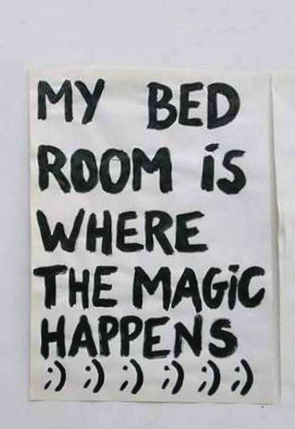 MY BED
ROOM iS
WHERE
THE MAGiC
HAPPENS
;) ;) ;) ;) ;) ;)